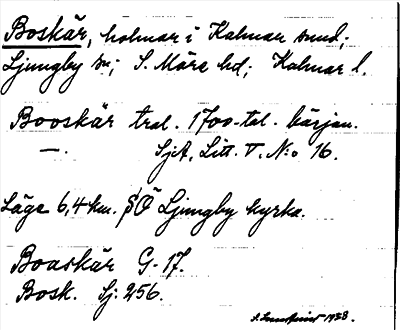 Boskär, holmar i Kalmar sund;
Ljungby sn; S. Möre hd; Kalmar l.
Booskär tral. 1700-tal. början.
—. SjA, Litt. V. N:o 16.
Läge 6,4 km. SÖ Ljungby kyrka.
Boaskär G. 17.
Bosk. Sj: 256.
1928.